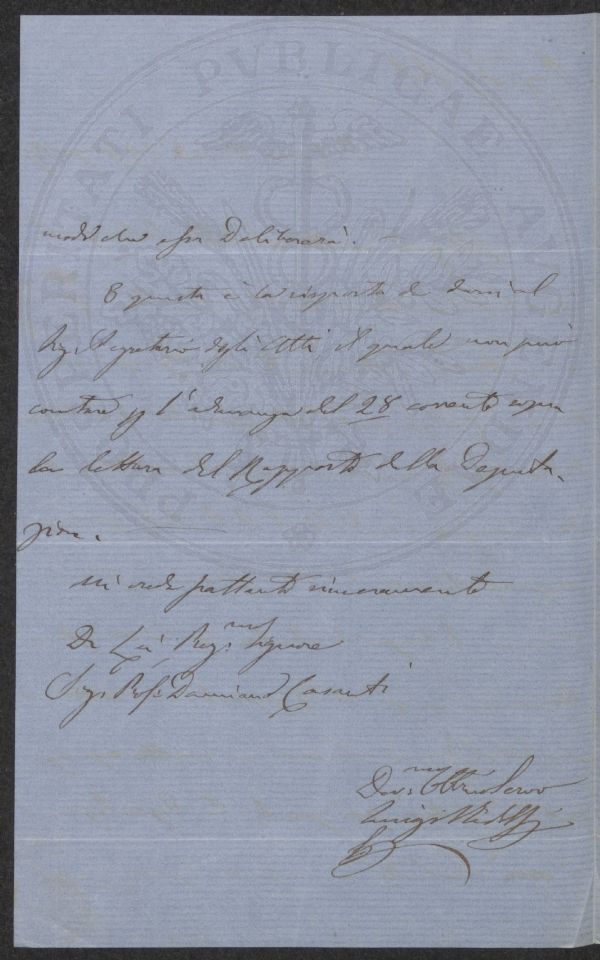 modo che essa Delibererà. —
E questa è la risposta da darsi al
Sig. Segretario degli Atti il quale non può
contare p l'adunanza del 28 corrente sopra
la lettura del Rapporto della Deputa-
zione.
Mi creda frattanto sinceramente
Di Lei Preg.mo Signore
Sig. Prof. Damiano Casanti
Dev.mo Obb.mo Servo
Luigi